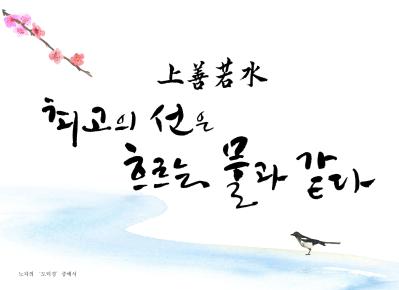 上善若水
최고의 선은
흐르는 물과 같다
노자의 '도덕경' 중에서